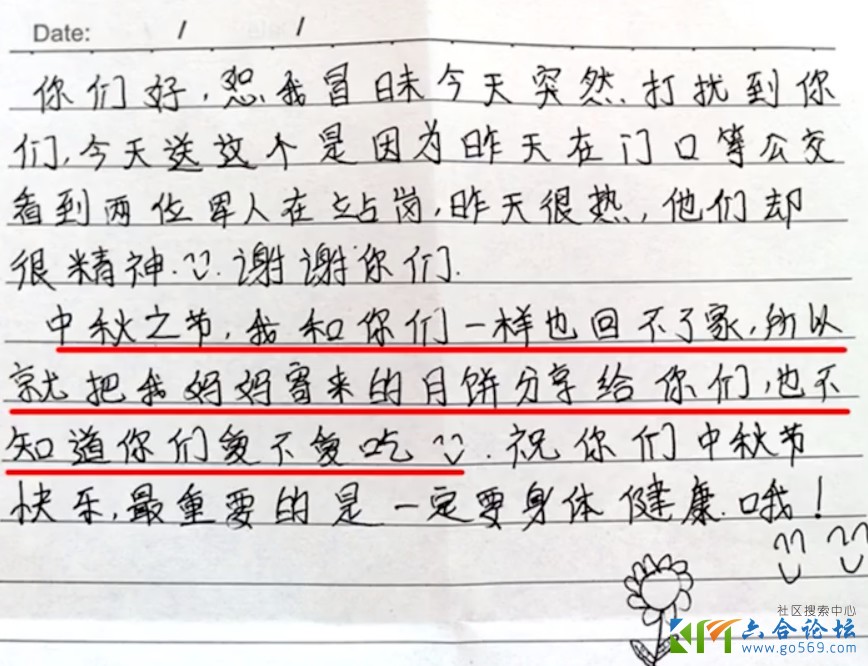 Date: / /
你们好，恕我冒昧今天突然打扰到你
们，今天送这个是因为昨天在门口等公交
看到两位军人在站岗，昨天很热，他们却
很精神.谢谢你们.
中秋之节，我和你们一样也回不了家，所以
就把我妈妈寄来的月饼分享给你们，也不
知道你们爱不爱吃.祝你们中秋节
快乐，最重要的是一定要身体健康哦！
社区搜索中心
六合论坛
www.go569.com